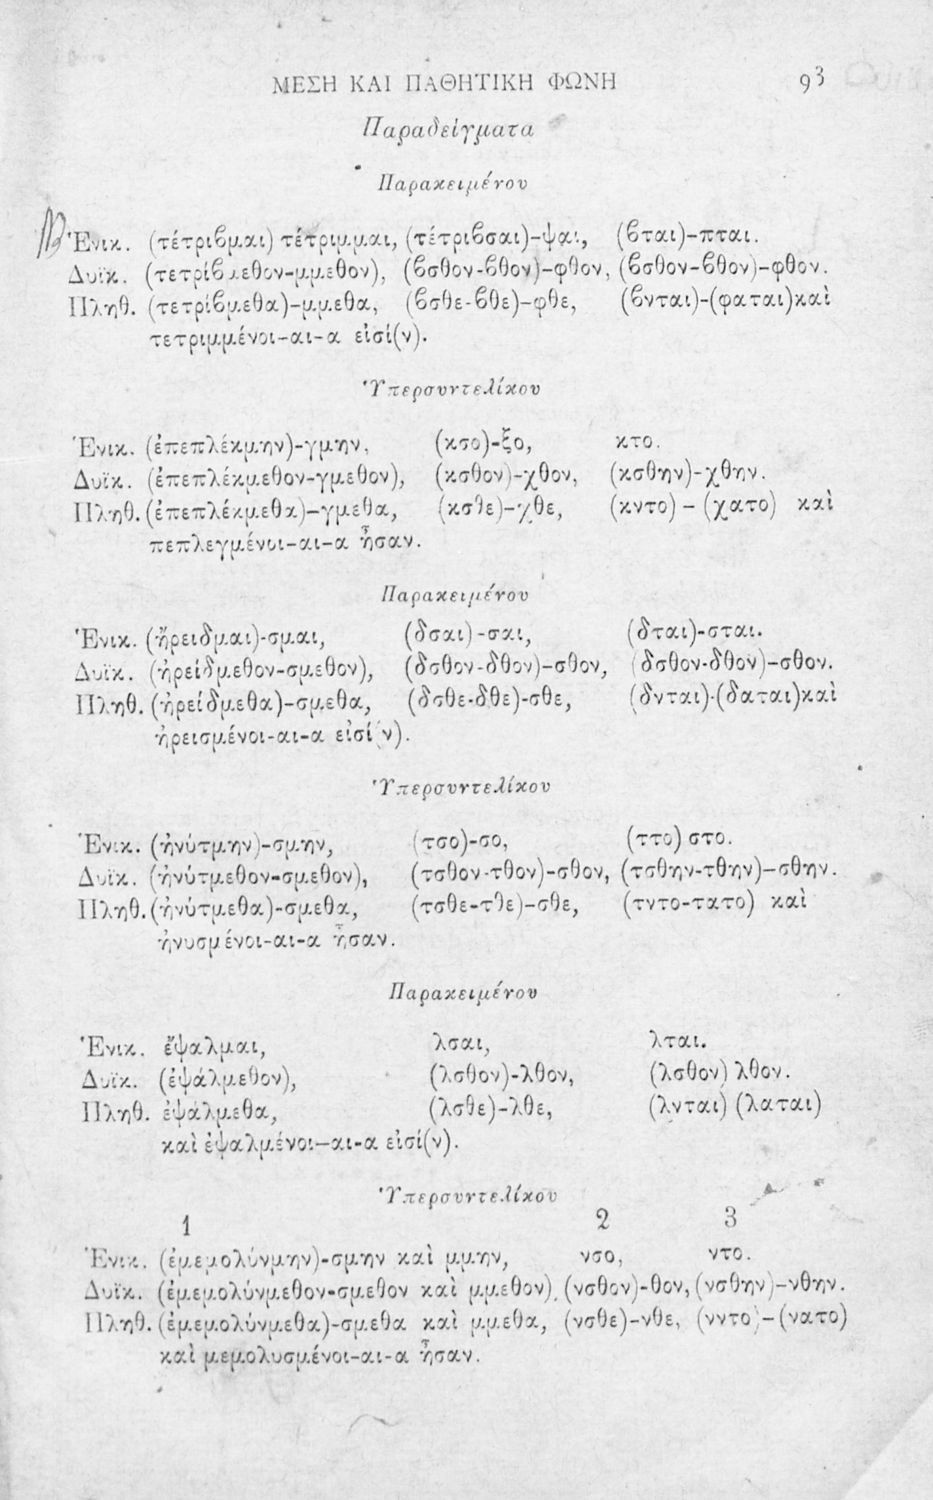 ΜΕΣΗ ΚΑΙ ΠΑΘΗΤΙΚΗ ΦΩΝΗ 93
Παραδείγματα
Παρακειμένου
Ἑνικ. (τέτριϐμαι) τέτριμμαι, (τέτριϐσαι)-ψαι, (ϐται)-πται.
Δυϊκ. (τετρίϐμεθον-μμεθον), (ϐσθον-ϐθον)-φθον, (ϐσθον-ϐθον)-φθον.
Πληθ. (τετρίϐμεθα)-μμεθα, (ϐσθε-ϐθε)-φθε, (ϐνται)-(φαται)καὶ
τετριμμένοι-αι-α εἰσί(ν).
Ὑπερσυντελίκου
Ἑνικ. (ἐπεπλέκμην)-γμην, (κσο)-ξο, κτο.
Δυϊκ. (ἐπεπλέκμεθον-γμεθον), (κσθον)-χθον, (κσθην)-χθην.
Πληθ. (ἐπεπλέκμεθα)-γμεθα, (κσθε)-χθε, (κντο) - (χατο) καὶ
πεπλεγμένοι-αι-α ἦσαν.
Παρακειμένου
Ἑνικ. (ἤρειδμαι)-σμαι, (δσαι)-σαι, (δται)-σται.
Δυϊκ. (ἠρείδμεθον-σμεθον), (δσθον-δθον)-σθον, (δσθον-δθον)-σθον.
Πληθ. (ἠρείδμεθα)-σμεθα, (δσθε-δθε)-σθε, (δνται)-(δαται)καὶ
ἠρεισμένοι-αι-α εἰσί(ν).
Ὑπερσυντελίκου
Ἑνικ. (ἠνύτμην)-σμην, (τσο)-σο, (ττο) στο.
Δυϊκ. (ἠνύτμεθον-σμεθον), (τσθον-τθον)-σθον, (τσθην-τθην)-σθην.
Πληθ. (ἠνύτμεθα)-σμεθα, (τσθε-τθε)-σθε, (τντο-τατο) καὶ
ἠνυσμένοι-αι-α ἦσαν.
Παρακειμένου
Ἑνικ. ἔψαλμαι, λσαι, λται.
Δυϊκ. (ἐψάλμεθον), (λσθον)-λθον, (λσθον) λθον.
Πληθ. ἐψάλμεθα, (λσθε)-λθε, (λνται) (λαται)
καὶ ἐψαλμένοι-αι-α εἰσί(ν).
Ὑπερσυντελίκου
1 2 3
Ἑνικ. (ἐμεμολύνμην)-σμην καὶ μμην, νσο, ντο.
Δυϊκ. (ἐμεμολύνμεθον-σμεθον καὶ μμεθον), (νσθον)-θον, (νσθην)-νθην.
Πληθ. (ἐμεμολύνμεθα)-σμεθα καὶ μμεθα, (νσθε)-νθε, (νντο)-(νατο)
καὶ μεμολυσμένοι-αι-α ἦσαν.